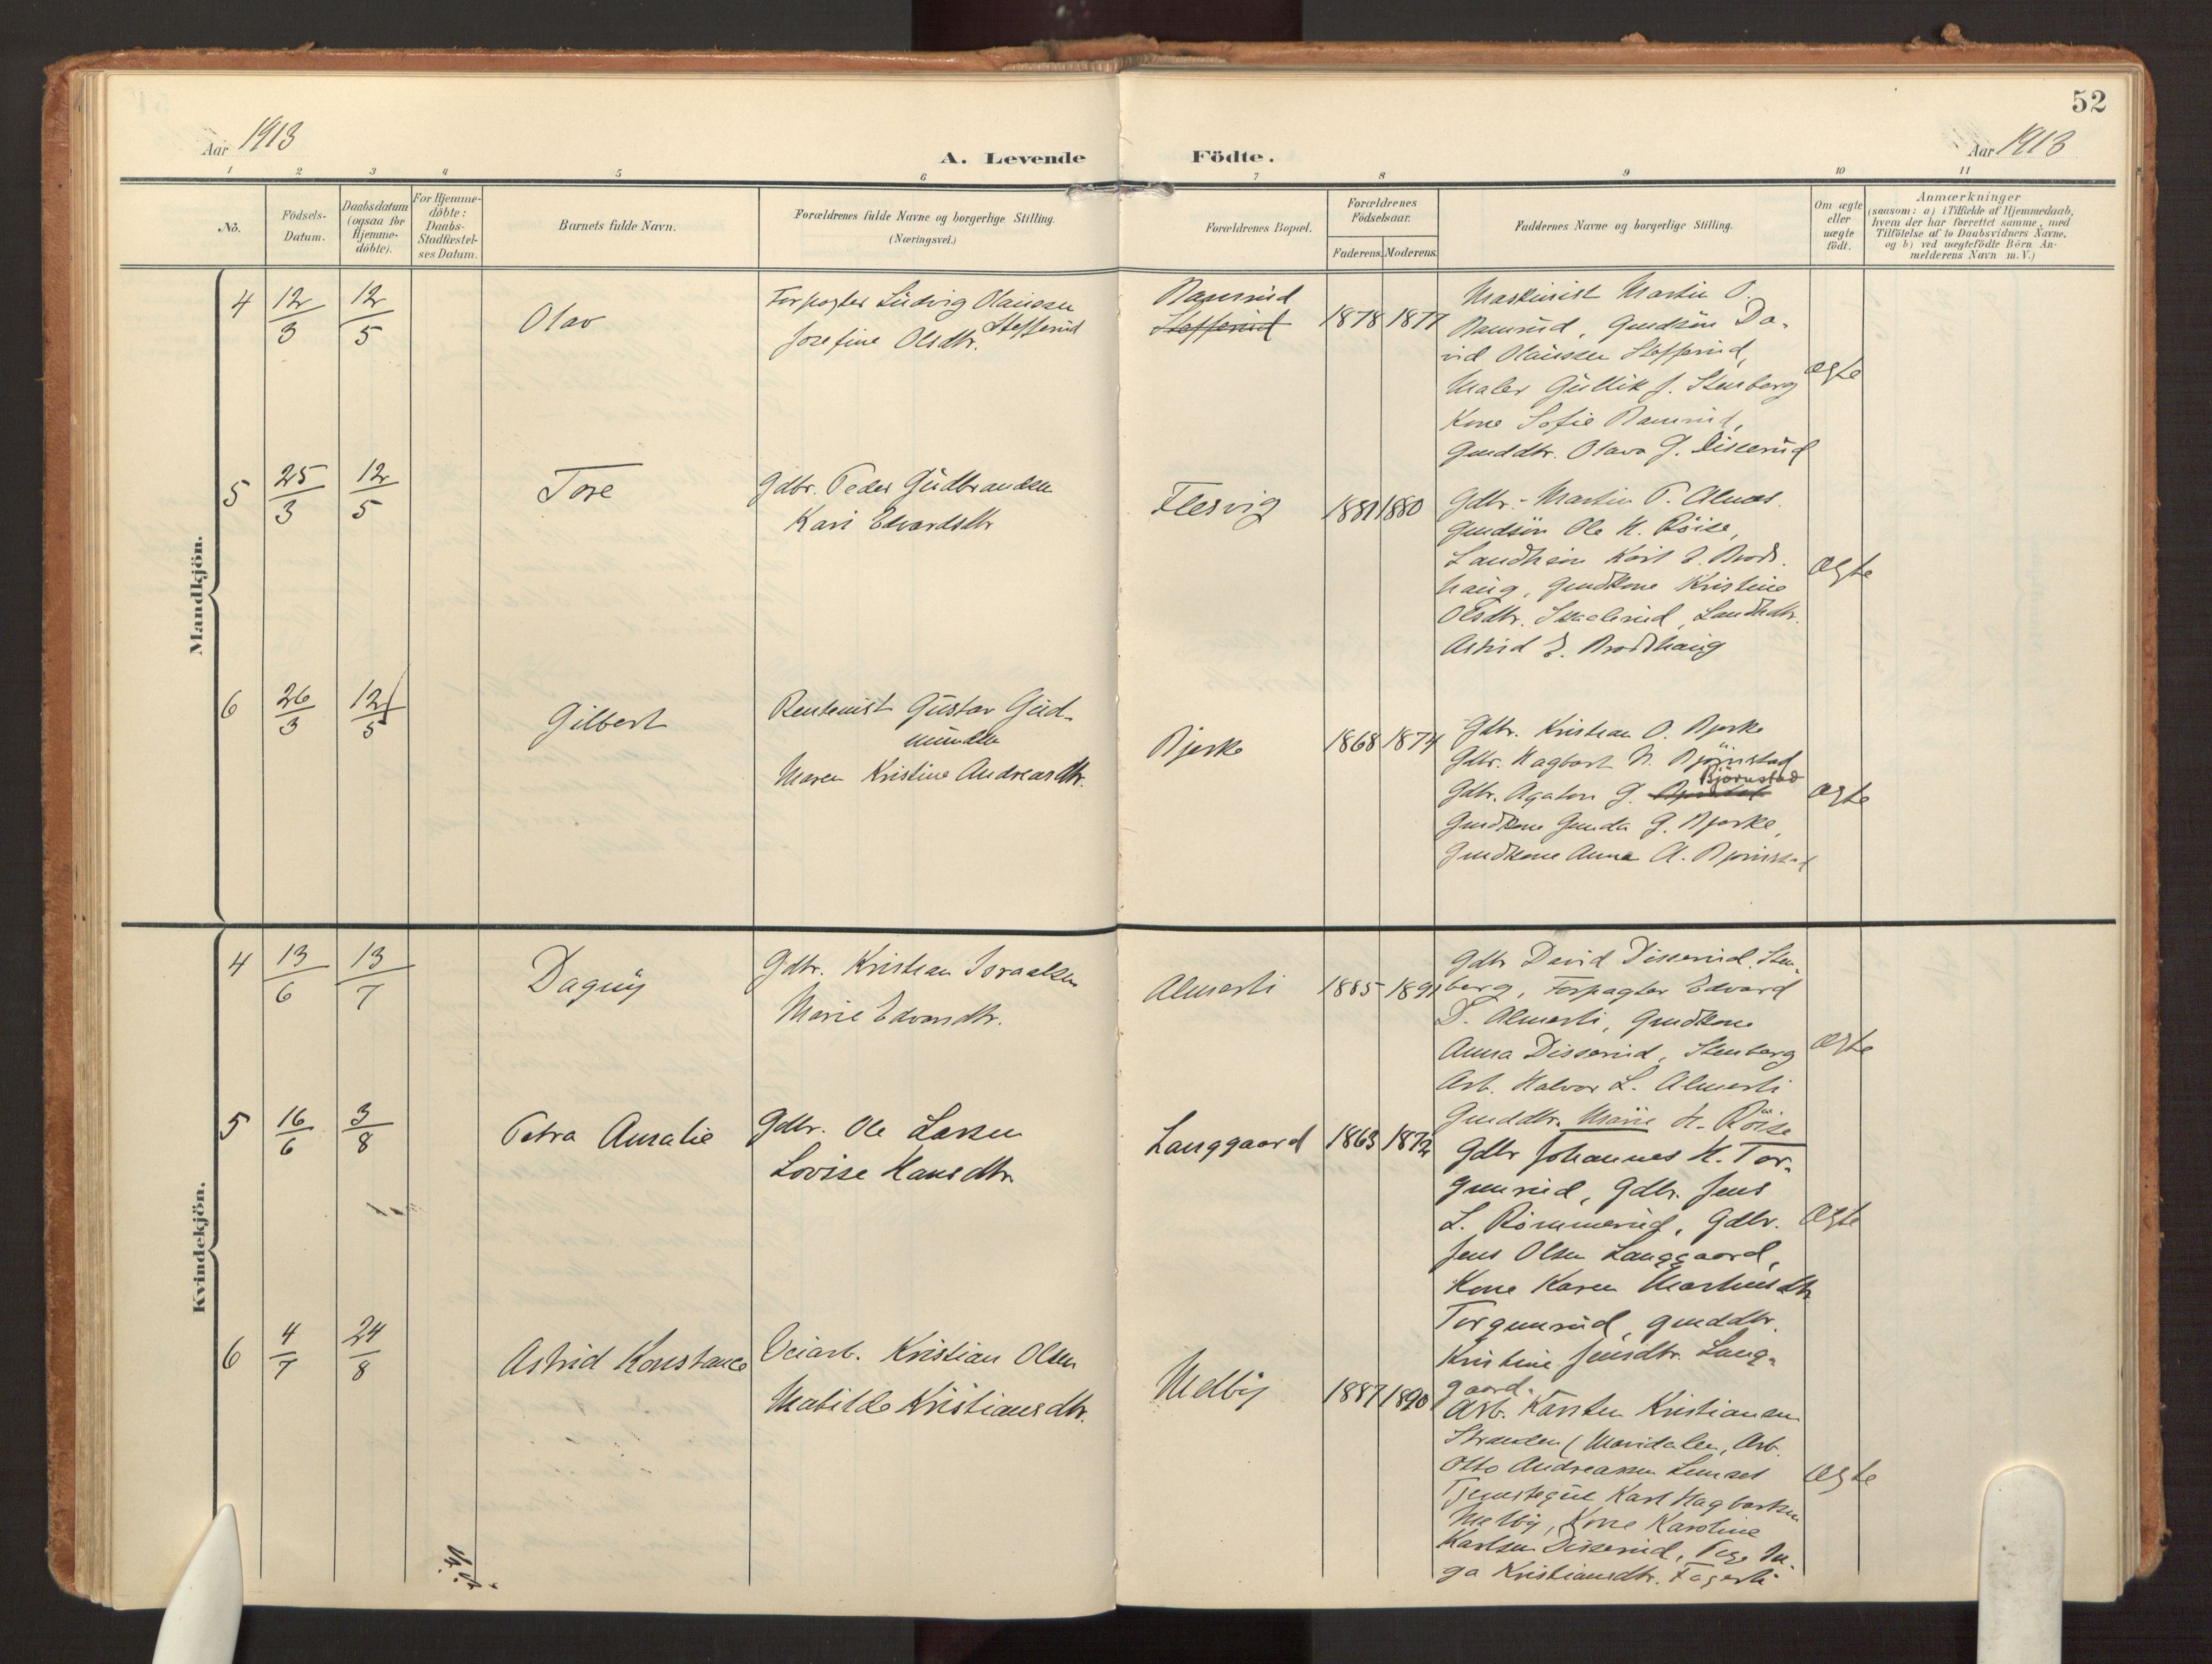 52
Aar 1913
A. Levende Födte.
Aar 1913
1 2 3 4 5 6 7 8 9 10 11
No.
Födsels-
Datum.
Daabsdatum
(ogsaa for
Hjemme-
döbte).
For Hjemme-
döbte:
Daabs-
Stadfæstel-
ses Datum.
Barnets fulde Navn.
Forældrenes fulde Navne og borgerlige Stilling.
(Næringsvei.)
Forældrenes Bopæl.
Forældrenes
Födselsaar.
Faderens. Moderens.
Faddernes Navne og borgerlige Stilling.
Om ægte
eller
uægte
födt.
Anmærkninger
(saasom: a) i Tilfælde af Hjemmedaab,
hvem der har forrettet samme, med
Tilföielse af to Daabsvidners Navne.
og b) ved uægtefödte Börn An-
melderens Navn m. V.)
Mandkjön.
4 12/3 12/5 Olav
Forpagter Ludvig Olaussen
Stefferud
Josefine Olsdtr.
Ramrud
Stefferud
1878 1877
Maskinist Martin O.
Ramrud, Gmdsön Da-
vid Olaussen Stefferud,
Maler Gullik J. Stenberg
Kone Sofie Ramrud,
Gmddtr. Olava G. Disserud
ægte
5 25/3 12/5 Tore
Gdbr. Peder Gudbrandsen
Kari Edvardsdtr
Flesvig
1881 1880
Gdbr. Martin P. Alnæs.
Gmdsön Ole H. Röise,
Landhsön Karl E. Brods-
haug, Gmdkone Kristine
Olsdtr. Skaclerud, Landhdtr.
Astrid E. Brodshaug
ægte
6 26/3 12/5 Gilbert
Rentenist Gustav Gud-
mundsen
Maren Kristine Andreasdtr.
Bjerke
1868 1874
Gdbr. Kristian O. Bjerke
Gdbr. Hagbart N. Björnstad
Björnstad
Gdbr. Agaton G.
Gmdkone Gunda G. Bjerke,
Gmdkone Anna A. Björnstad
ægte
Kvindekjön.
4 13/6 13/7 Dagny
Gdbr. Kristian Israelsen
Marie Edvardsdtr.
Almerli
1885 1891
Gdbr David Disserud. Sten-
berg, Forpagter Edvard
T. Almerli, Gmdkone
Anna Disserud, Stenberg
Arb. Halvor L. Almerli
Gmddtr. Marie H. Röise
ægte
5 16/6 3/8 Petra Amalie
Gdbr. Ole Larsen
Lovise Hansdtr
Langgaard
1863 1872
Gdbr Johannes H. Tor-
gunrud, Gdbr. Jens
L. Römmerud, Gdbr.
Jens Olsen Langgaard,
Kone Karen Martinsdtr
Torgunrud, Gmddtr.
Kristine Jensdtr. Lang-
gaard.
ægte
6 4/7 24/8 Astrid Konstance
Veiarb. Kristian Olsen
Matilde Kristiansdtr.
Melby
1887 1890
Arb. Karsten Kristiansen
Stranden (Maridalen, Arb.
Otto Andreassen Lunset
Tjenestegut Karl Hagbartsen
Melby, Kone Karoline
Karlsen Disserud, Pige In-
ga Kristiansdtr. Fagerli
ægte